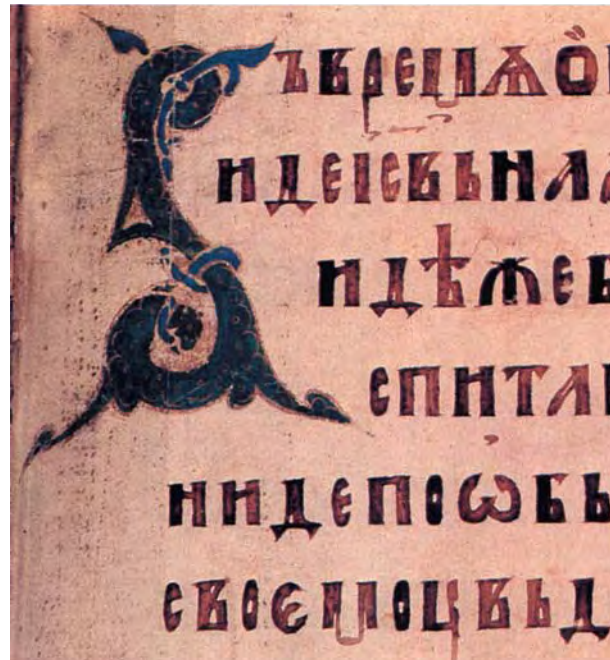 Въврємѧо
идеісвьна
идѣжеб
спитан
нидепоѡбы
своємоувьд